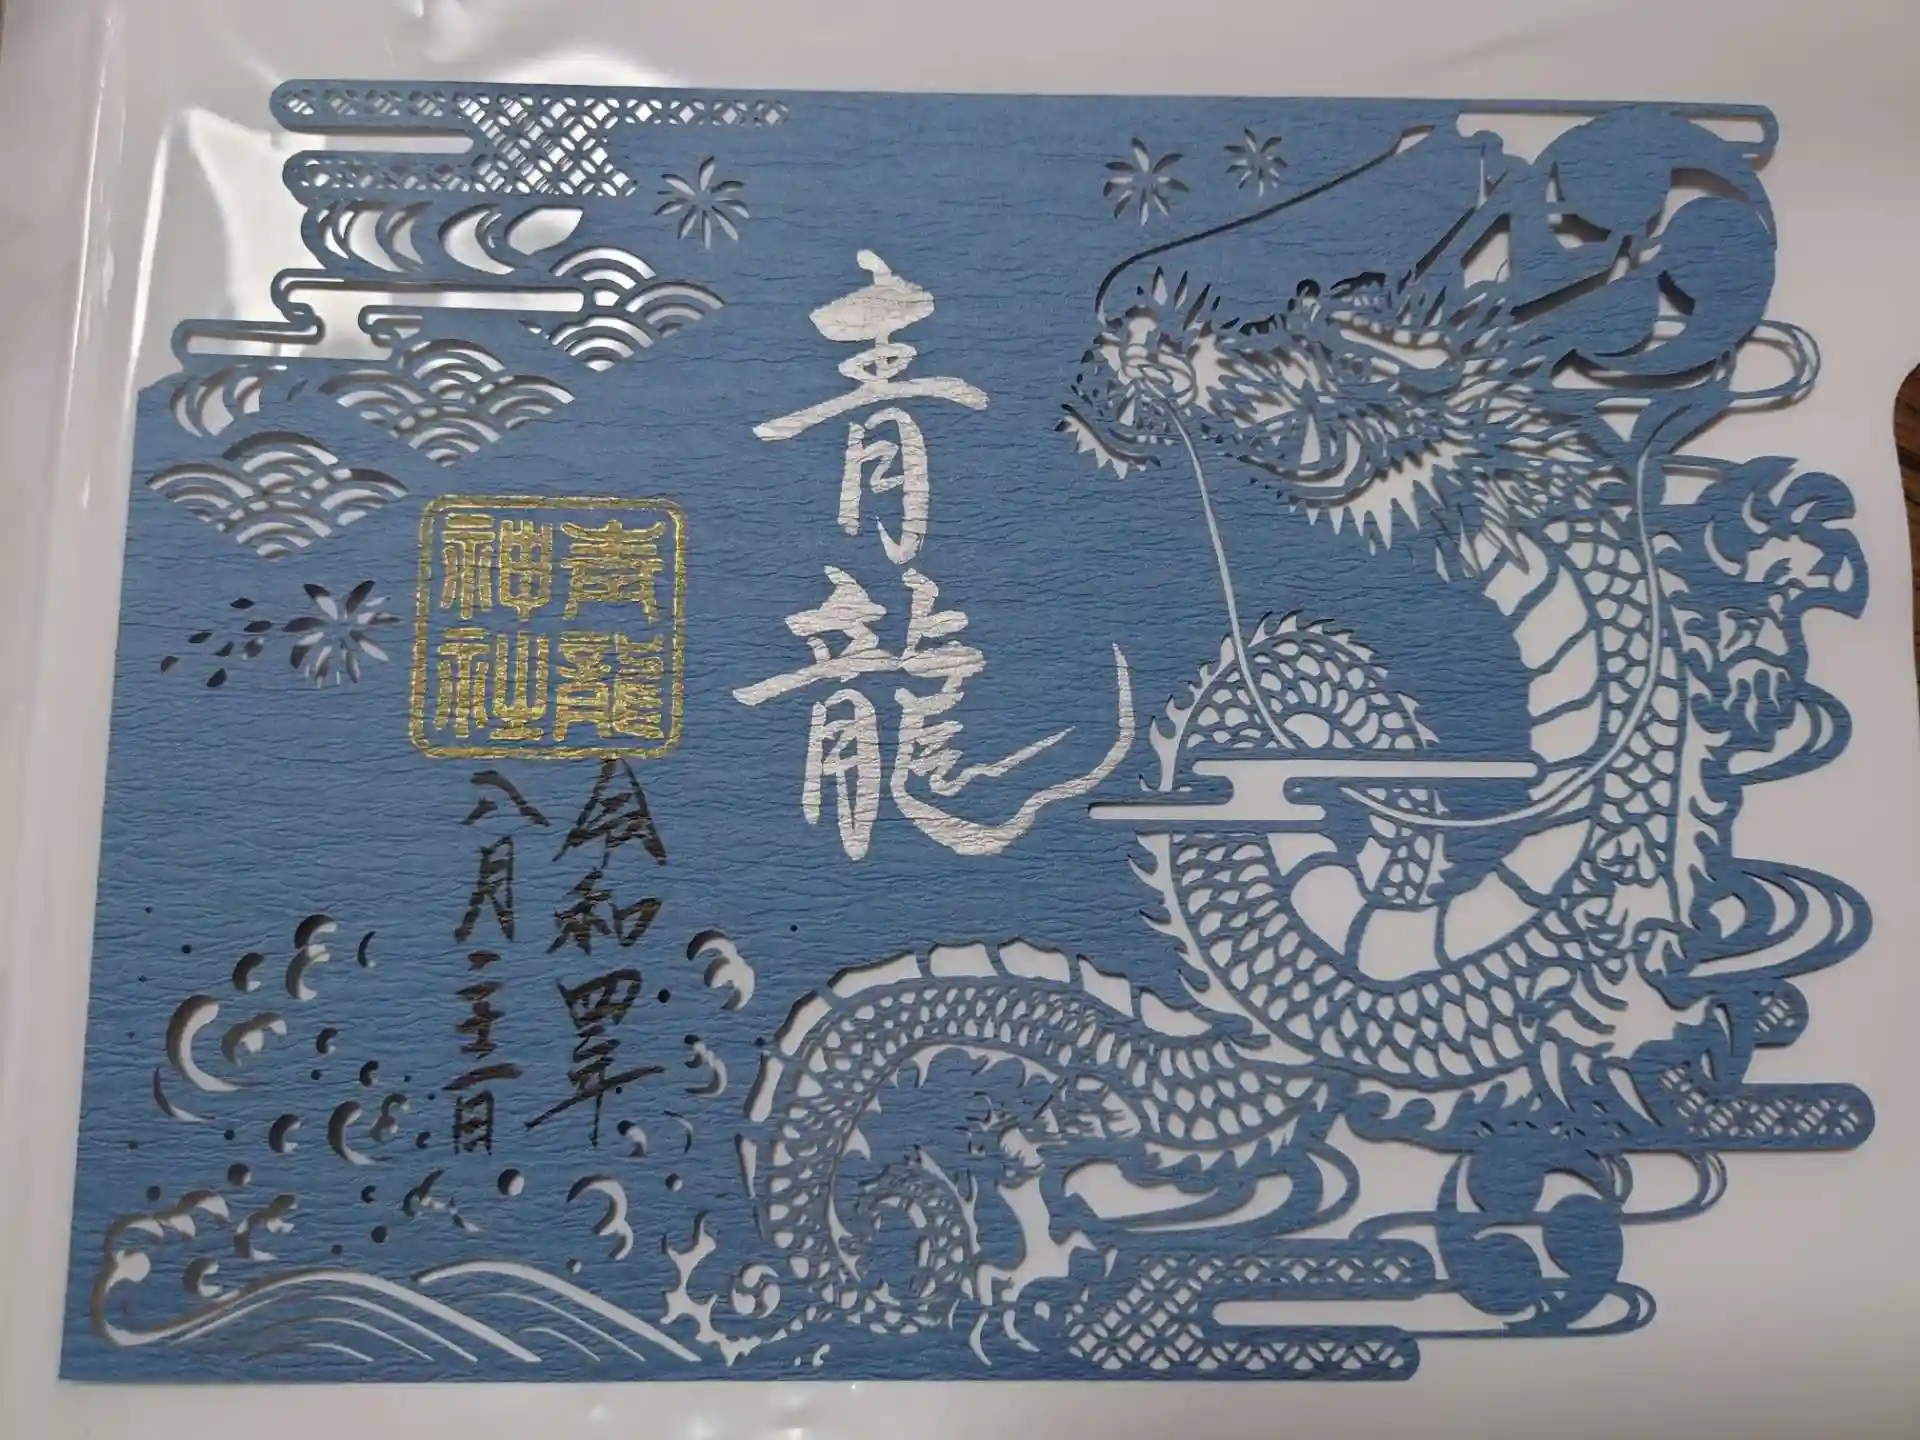 青龍
青龍
神社
令和四年
八月二十一日